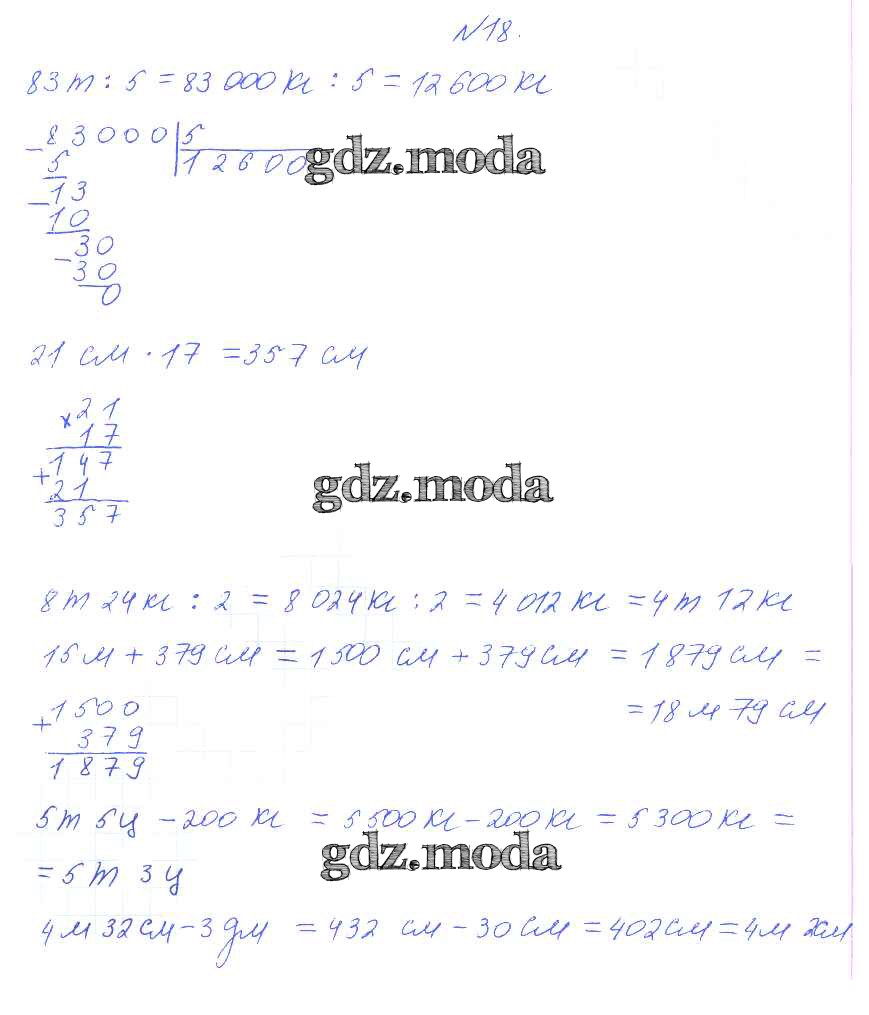 N18.
83т : 5 = 83 000 кг : 5 = 12 600 кг
- 83000 | 5
5 12600
gdz.moda
- 13
10
- 30
30
0
21 см · 17 = 357 см
× 21
17
+ 147
21
357
gdz.moda
8т 24кг : 2 = 8 024кг : 2 = 4 012 кг = 4т 12кг
15м + 379 см = 1 500 см + 379см = 1 879 см =
= 18 м 79 см
+ 1500
379
1879
5т 5ц - 200 кг = 5 500 кг - 200 кг = 5 300 кг =
= 5т 3ц
gdz.moda
4м 32см - 3дм = 432 см - 30см = 402см = 4м 2см